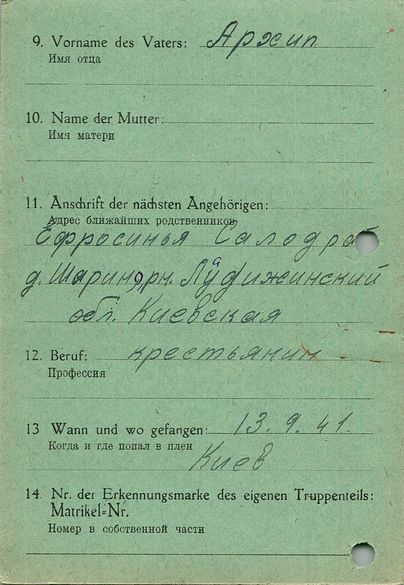 9. Vorname des Vaters: Архип
Имя отца
10. Name der Mutter:
Имя матери
11. Anschrift der nächsten Angehörigen:
Адрес ближайших родственников
Ефросинья
д.
обл. Киевская
12. Beruf: крестьянин
Профессия
13 Wann und wo gefangen: 13. 9. 41.
Когда и где попал в плен
Киев
14. Nr. der Erkennungsmarke des eigenen Truppenteils:
Matrikel-Nr.
Номер в собственной части